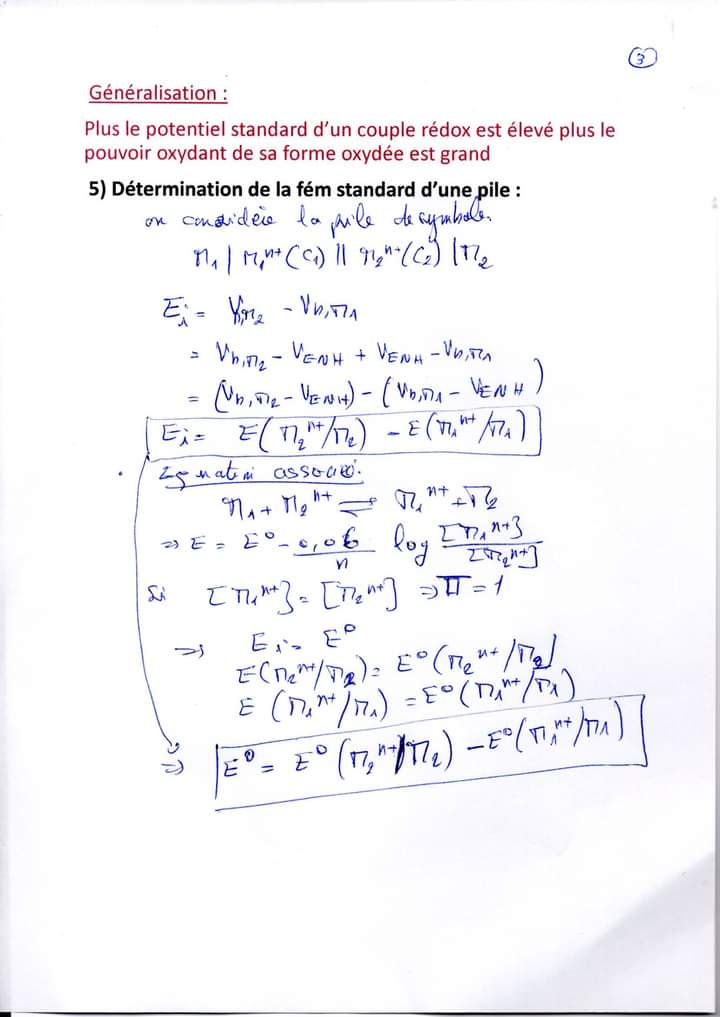 3
Généralisation :
Plus le potentiel standard d'un couple rédox est élevé plus le
pouvoir oxydant de sa forme oxydée est grand
5) Détermination de la fém standard d'une pile :
on considère la pile de symbole
M₁ | M₁ⁿ⁺(C₁) || M₂ⁿ⁺(C₂) | M₂
Eᵢ = V_b,M₂ - V_b,M₁
= V_b,M₂ - V_ENH + V_ENH - V_b,M₁
= (V_b,M₂ - V_ENH) - (V_b,M₁ - V_ENH)
Eᵢ = E(M₂ⁿ⁺/M₂) - E(M₁ⁿ⁺/M₁)
Equation associé:
M₁ + M₂ⁿ⁺ ⇌ M₁ⁿ⁺ + M₂
⇒ E = E° - 0,06/n log [M₁ⁿ⁺]/[M₂ⁿ⁺]
Si [M₁ⁿ⁺] = [M₂ⁿ⁺] ⇒ Π = 1
⇒ Eᵢ = E°
E(M₂ⁿ⁺/M₂) = E°(M₂ⁿ⁺/M₂)
E (M₁ⁿ⁺/M₁) = E°(M₁ⁿ⁺/M₁)
⇒ E° = E°(M₂ⁿ⁺/M₂) - E°(M₁ⁿ⁺/M₁)